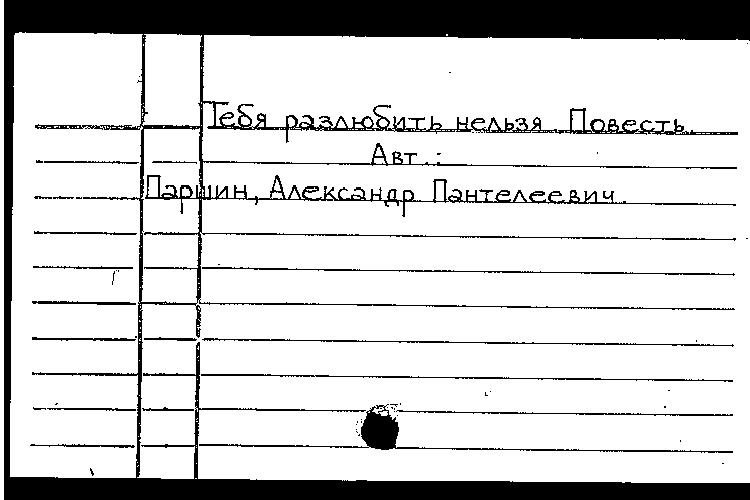 Тебя разлюбить нельзя. Повесть.
Авт.:
Паршин, Александр Пантелеевич.